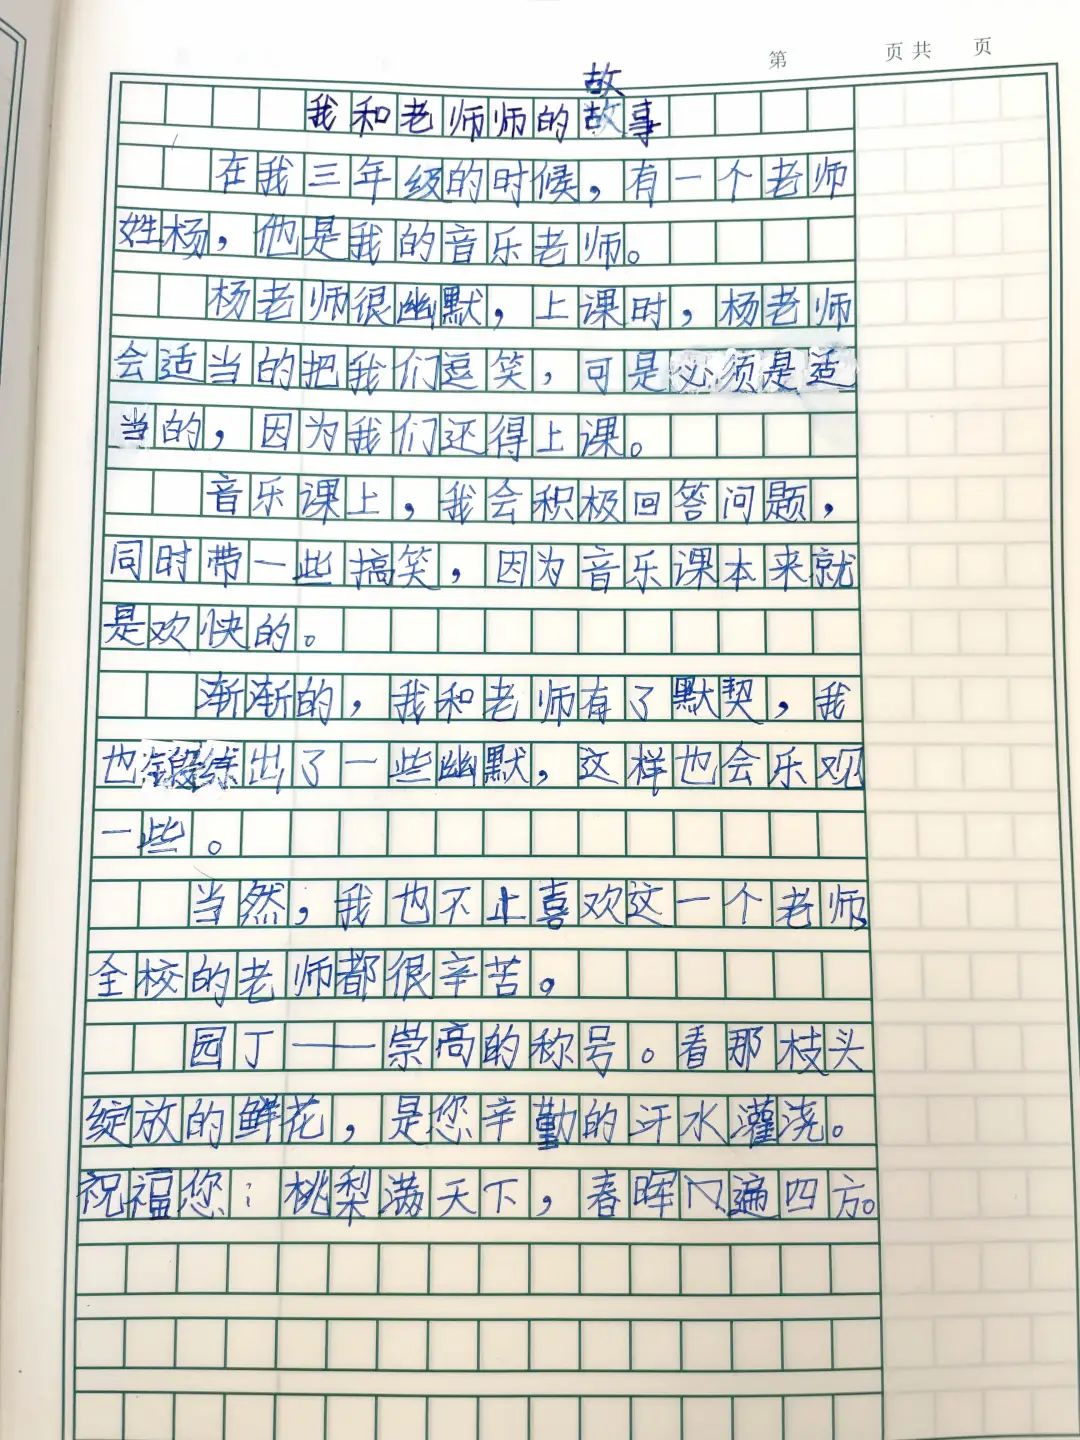 第 页共 页
故
我和老师师的故事
在我三年级的时候，有一个老师
姓杨，他是我的音乐老师。
杨老师很幽默，上课时，杨老师
会适当的把我们逗笑，可是必须是适
当的，因为我们还得上课。
音乐课上，我会积极回答问题，
同时带一些搞笑，因为音乐课本来就
是欢快的。
渐渐的，我和老师有了默契，我
也锻练出了一些幽默，这样也会乐观
一些。
当然，我也不止喜欢这一个老师，
全校的老师都很辛苦。
园丁——崇高的称号。看那枝头
绽放的鲜花，是您辛勤的汗水灌浇。
祝福您：桃梨满天下，春晖遍四方。